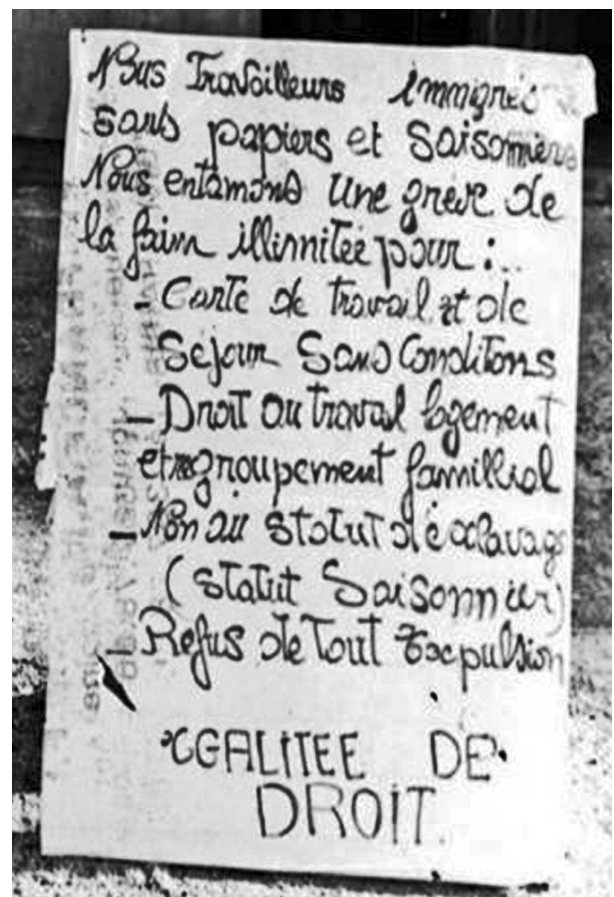 Nous Travailleurs immigrés
sans papiers et Saisonniers
Nous entamons Une grève de
la faim illimitée pour :
- Carte de travail et de
Séjour Sans Conditions
- Droit au travail logement
et regroupement famillial
- Non au Statut d'esclavage
(Statut Saisonnier)
- Refus de Tout Expulsion
EGALITEE DE
DROIT.